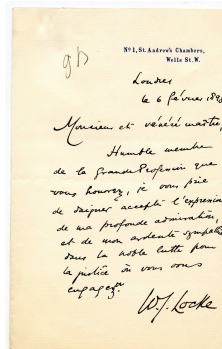 No 1, St. Andrew's Chambers,
Wells St. W.
Londres
le 6 février 189
Monsieur et vénéré maître
Humble membre
de la Grande Profession que
vous honorez, je vous prie
de daigner accepter l'expression
de ma profonde admiration,
et de mon ardente sympathie
dans la noble lutte pour
la justice où vous vous
engagez
W. J. Locke